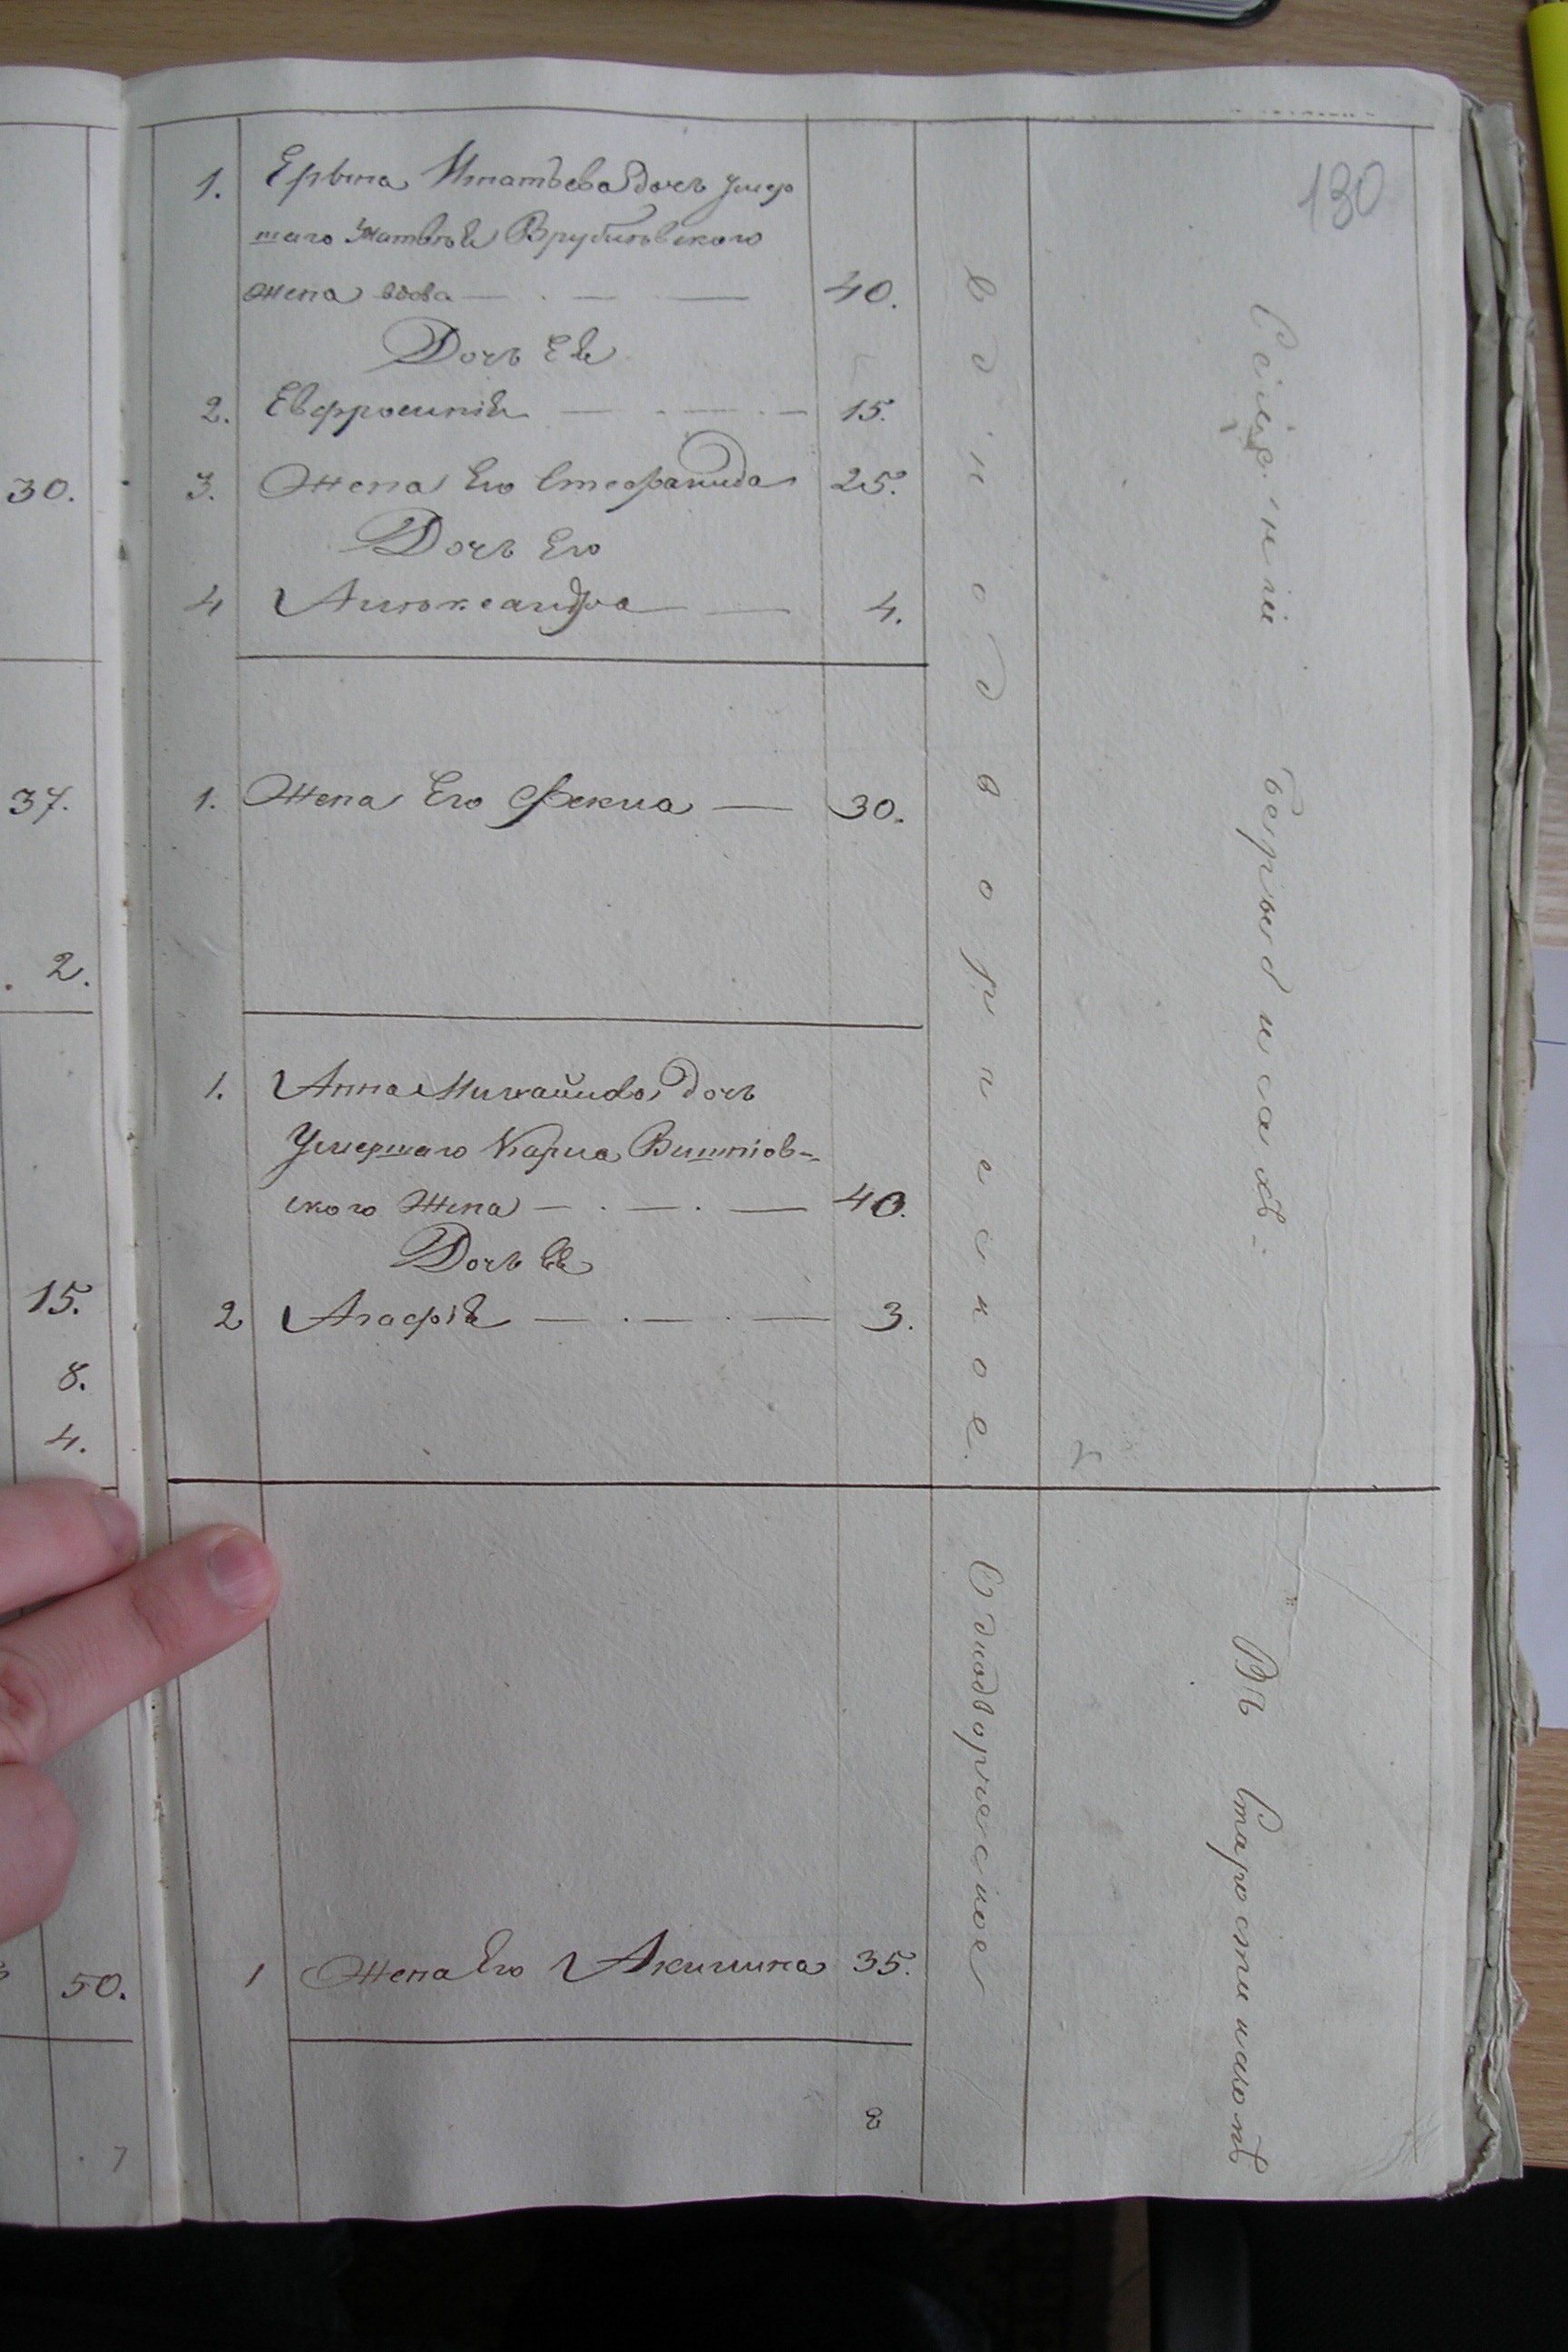 130
30.
37.
2.
15.
8.
4.
50.
7
1. Игнатьева дочь умер
шаго Матвѣя Врублевского
жена вдова — . — — 40.
Дочь Ея
2. Евфросинія — . — . — 15.
3. Жена Его Стефанида 25.
Дочь Его
4 Александра — 4.
1. Жена Его Фекла — 30.
1. Анна Михайлова дочь
Умершаго Карпа Вишнiов-
ского Жена — . — . — 40.
Дочь Ея
2 Агафія — . — . — 3.
1 Жена Его Акилина 35.
8
въ Однодворческое.
Однодворческое
Селеніи
Въ Старостинцахъ